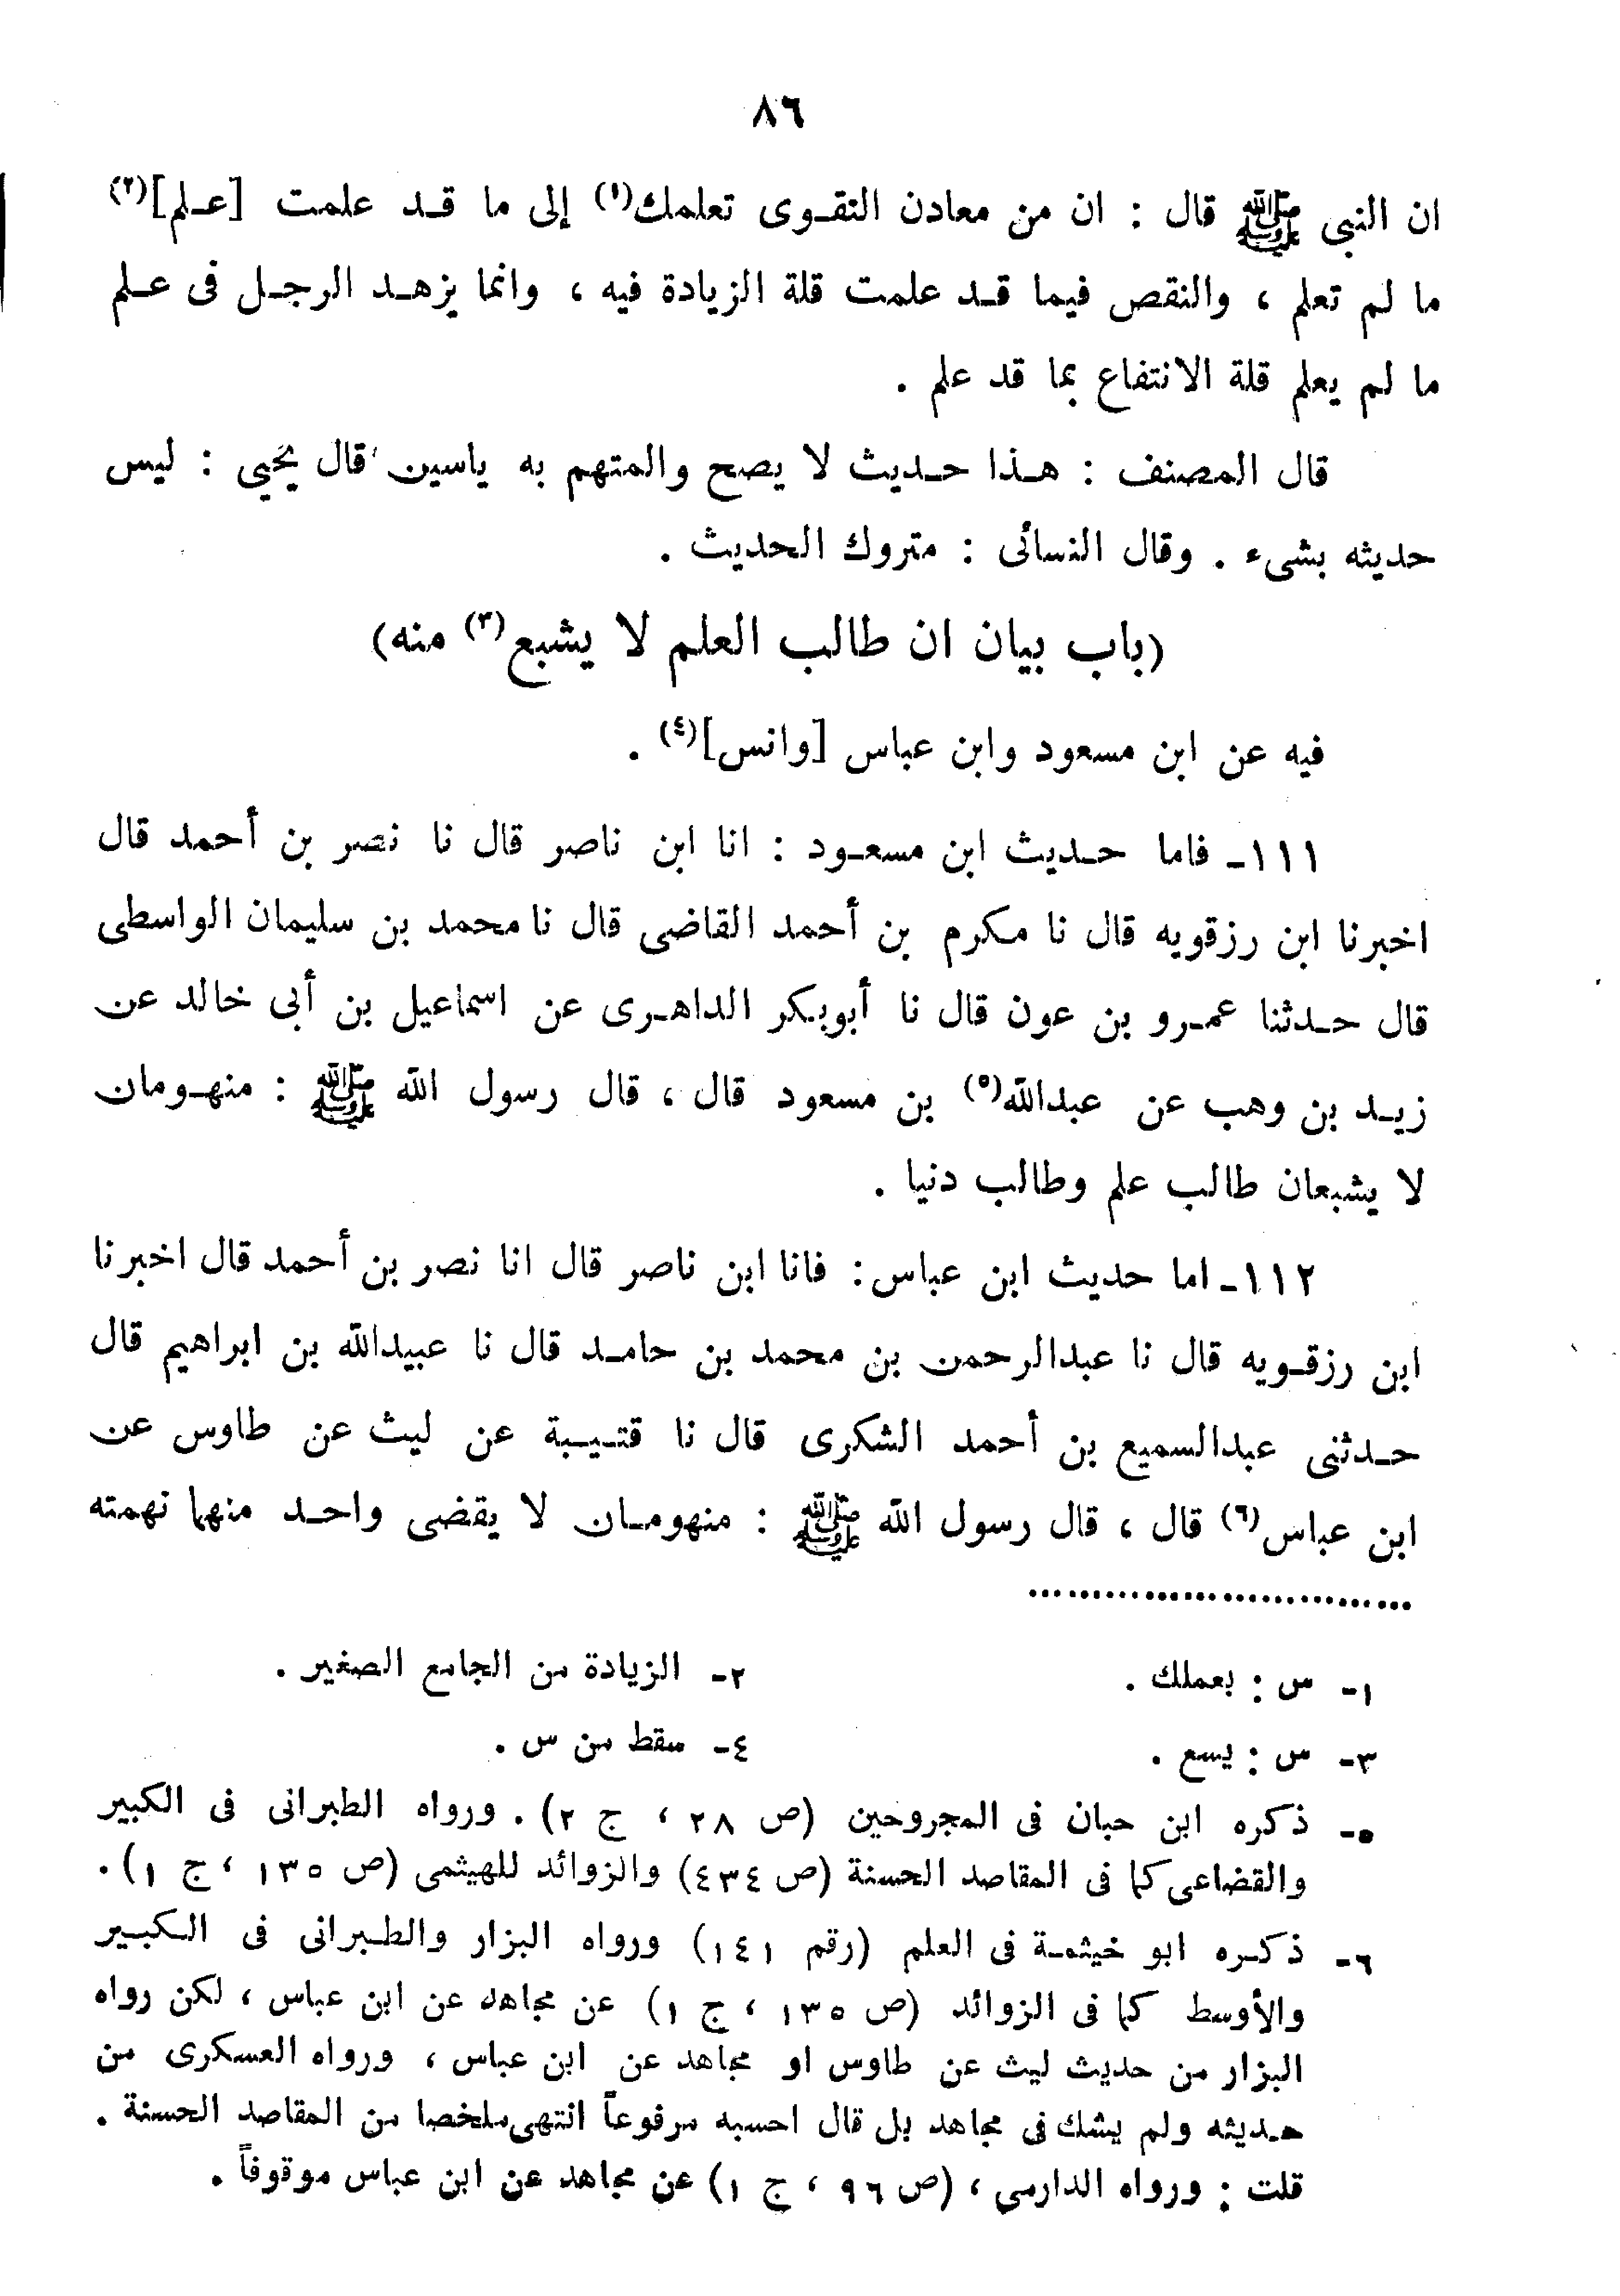 ٨٦
ان النبي ﷺ قال : ان من معادن التقوى تعلمك(١) إلى ما قد علمت [علم](٢)
ما لم تعلم ، والنقص فيما قد علمت قلة الزيادة فيه ، وانما يزهد الرجل فى علم
ما لم يعلم قلة الانتفاع بما قد علم .
قال المصنف : هذا حديث لا يصح والمتهم به ياسين قال يحيي : ليس
حديثه بشىء . وقال النسائى : متروك الحديث .
(باب بيان ان طالب العلم لا يشبع(٣) منه)
فيه عن ابن مسعود وابن عباس [وانس](٤) .
١١١ـ فاما حديث ابن مسعود : انا ابن ناصر قال نا نصر بن أحمد قال
اخبرنا ابن رزقويه قال نا مكرم بن أحمد القاضى قال نا محمد بن سليمان الواسطى
قال حدثنا عمرو بن عون قال نا أبوبكر الداهرى عن اسماعيل بن أبى خالد عن
زيد بن وهب عن عبدالله(٥) بن مسعود قال ، قال رسول الله ﷺ : منهومان
لا يشبعان طالب علم وطالب دنيا .
١١٢ـ اما حديث ابن عباس : فانا ابن ناصر قال انا نصر بن أحمد قال اخبرنا
ابن رزقويه قال نا عبدالرحمن بن محمد بن حامد قال نا عبيدالله بن ابراهيم قال
حدثنى عبدالسميع بن أحمد الشكرى قال نا قتيبة عن ليث عن طاوس عن
ابن عباس(٦) قال ، قال رسول الله ﷺ : منهومان لا يقضى واحد منهما نهمته
..............................
١ـ س : بعملك . ٢ـ الزيادة من الجامع الصغير .
٣ـ س : يسع . ٤ـ سقط من س .
٥ـ ذكره ابن حبان فى المجروحين (ص ٢٨ ، ج ٢) . ورواه الطبرانى فى الكبير
والقضاعى كما فى المقاصد الحسنة (ص ٤٣٤) والزوائد للهيثمى (ص ١٣٥ ، ج ١) .
٦ـ ذكره ابو خيثمة فى العلم (رقم ١٤١) ورواه البزار والطبرانى فى الكبير
والأوسط كما فى الزوائد (ص ١٣٥ ، ج ١) عن مجاهد عن ابن عباس ، لكن رواه
البزار من حديث ليث عن طاوس او مجاهد عن ابن عباس ، ورواه العسكرى من
حديثه ولم يشك فى مجاهد بل قال احسبه مرفوعاً انتهى ملخصا من المقاصد الحسنة .
قلت : ورواه الدارمى ، (ص ٩٦ ، ج ١) عن مجاهد عن ابن عباس موقوفاً .